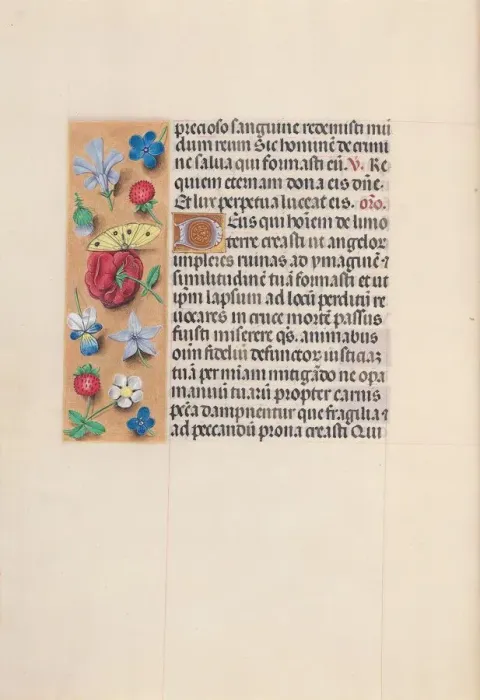 precioso sanguine redemisti mū
dum reum Sic hominē de crimi
ne salua qui formasti eū. V. Re
quiem eternam dona eis dñe.
Et lux perpetua luceat eis. orō.
Deus qui hoīem de limo
terre creasti ut angelor
impleres ruinas ad ymaginē ⁊
similitudinē tuā formasti et ut
ipm̄ lapsum ad locū perditū re
uocares in cruce mortē passus
fuisti miserere qs. animabus
oīm fideliū defunctor iusticiaȝ
tuā per mīam mitigādo ne opa
manuū tuarū propter carnis
pctā dampnentur que fragilia ⁊
ad peccandū prona creasti Qui